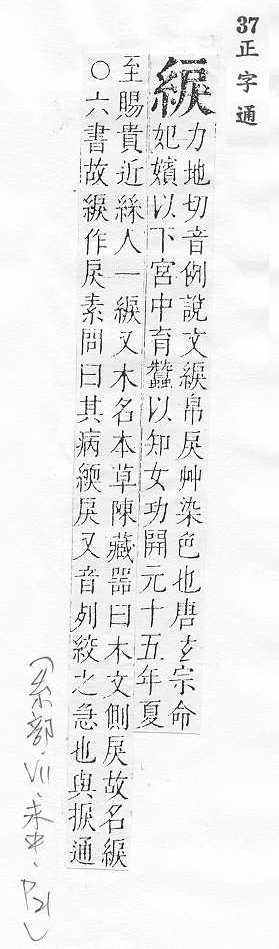 37
正字通
綟
力地切音例說文綟帛戾艸染色也唐玄宗命
妃嬪以下宮中育蠶以知女功開元十五年夏
至賜貴近絲人一綟又木名本草陳藏器曰木文側戾故名綟
○六書故綟作戾素問曰其病緛戾又音列絞之急也與捩通